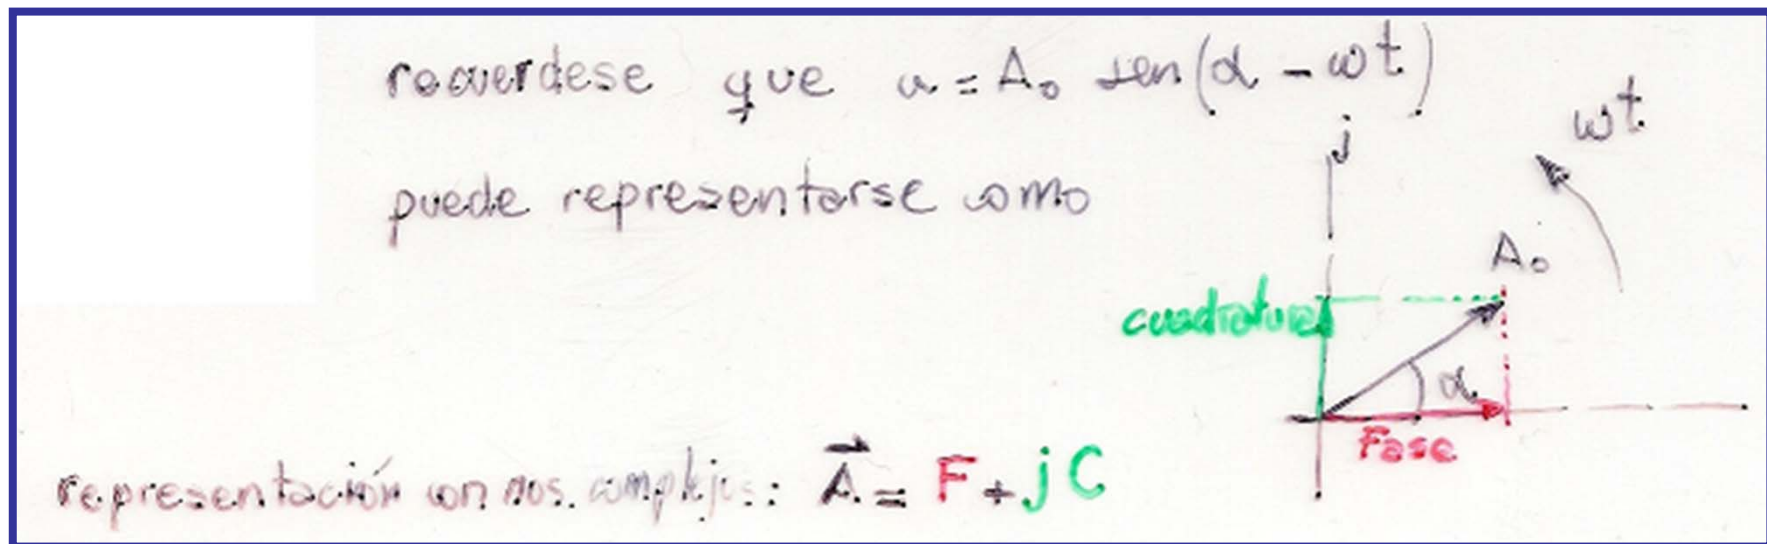 recuerdese que u = A₀ sen(α - ωt)
puede representarse como
j
ωt
A₀
cuadratura
α
Fase
representación con nos. complejos: A⃗ = F + j C